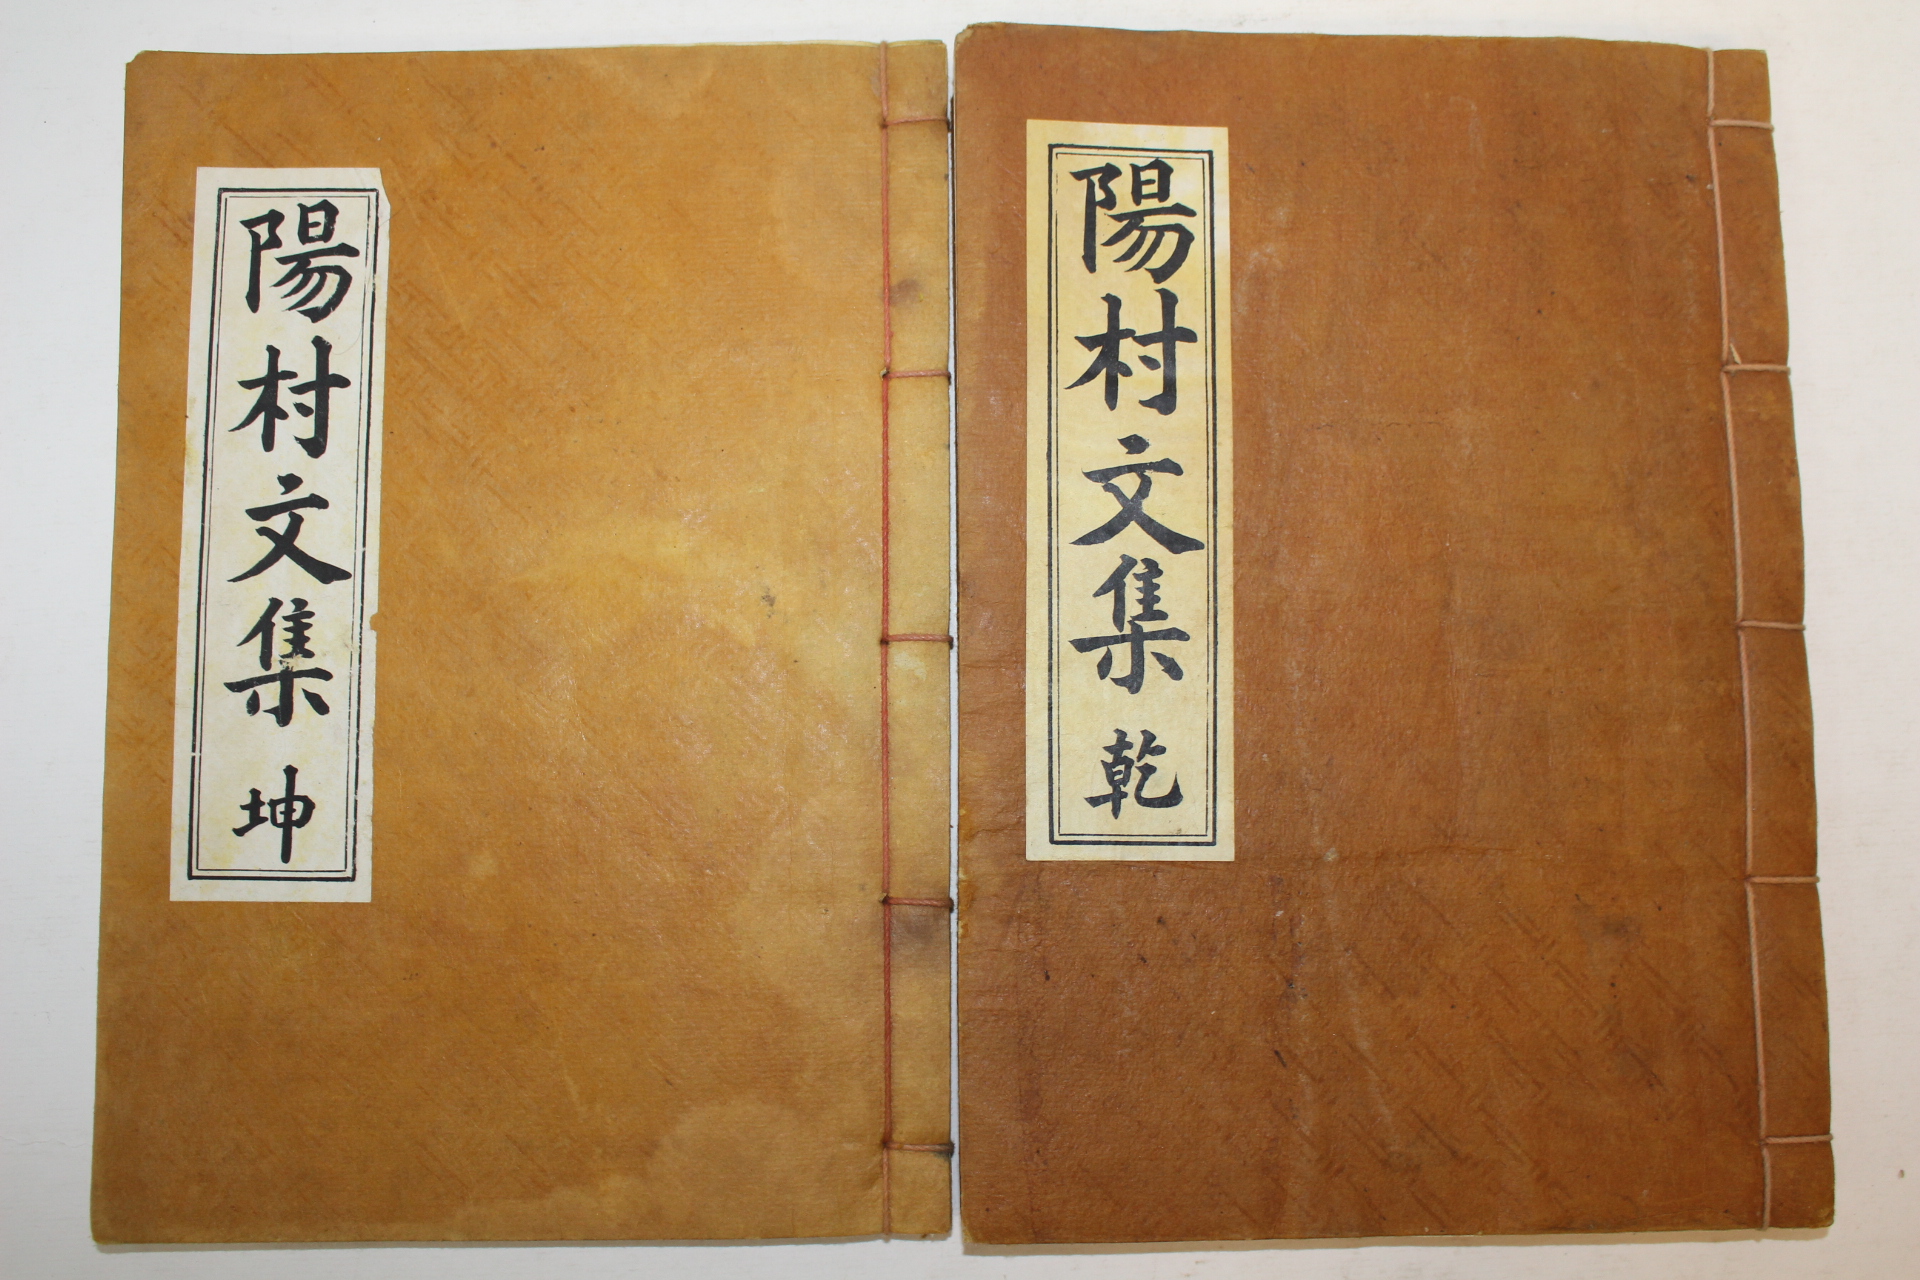 陽村文集 乾
陽村文集 坤